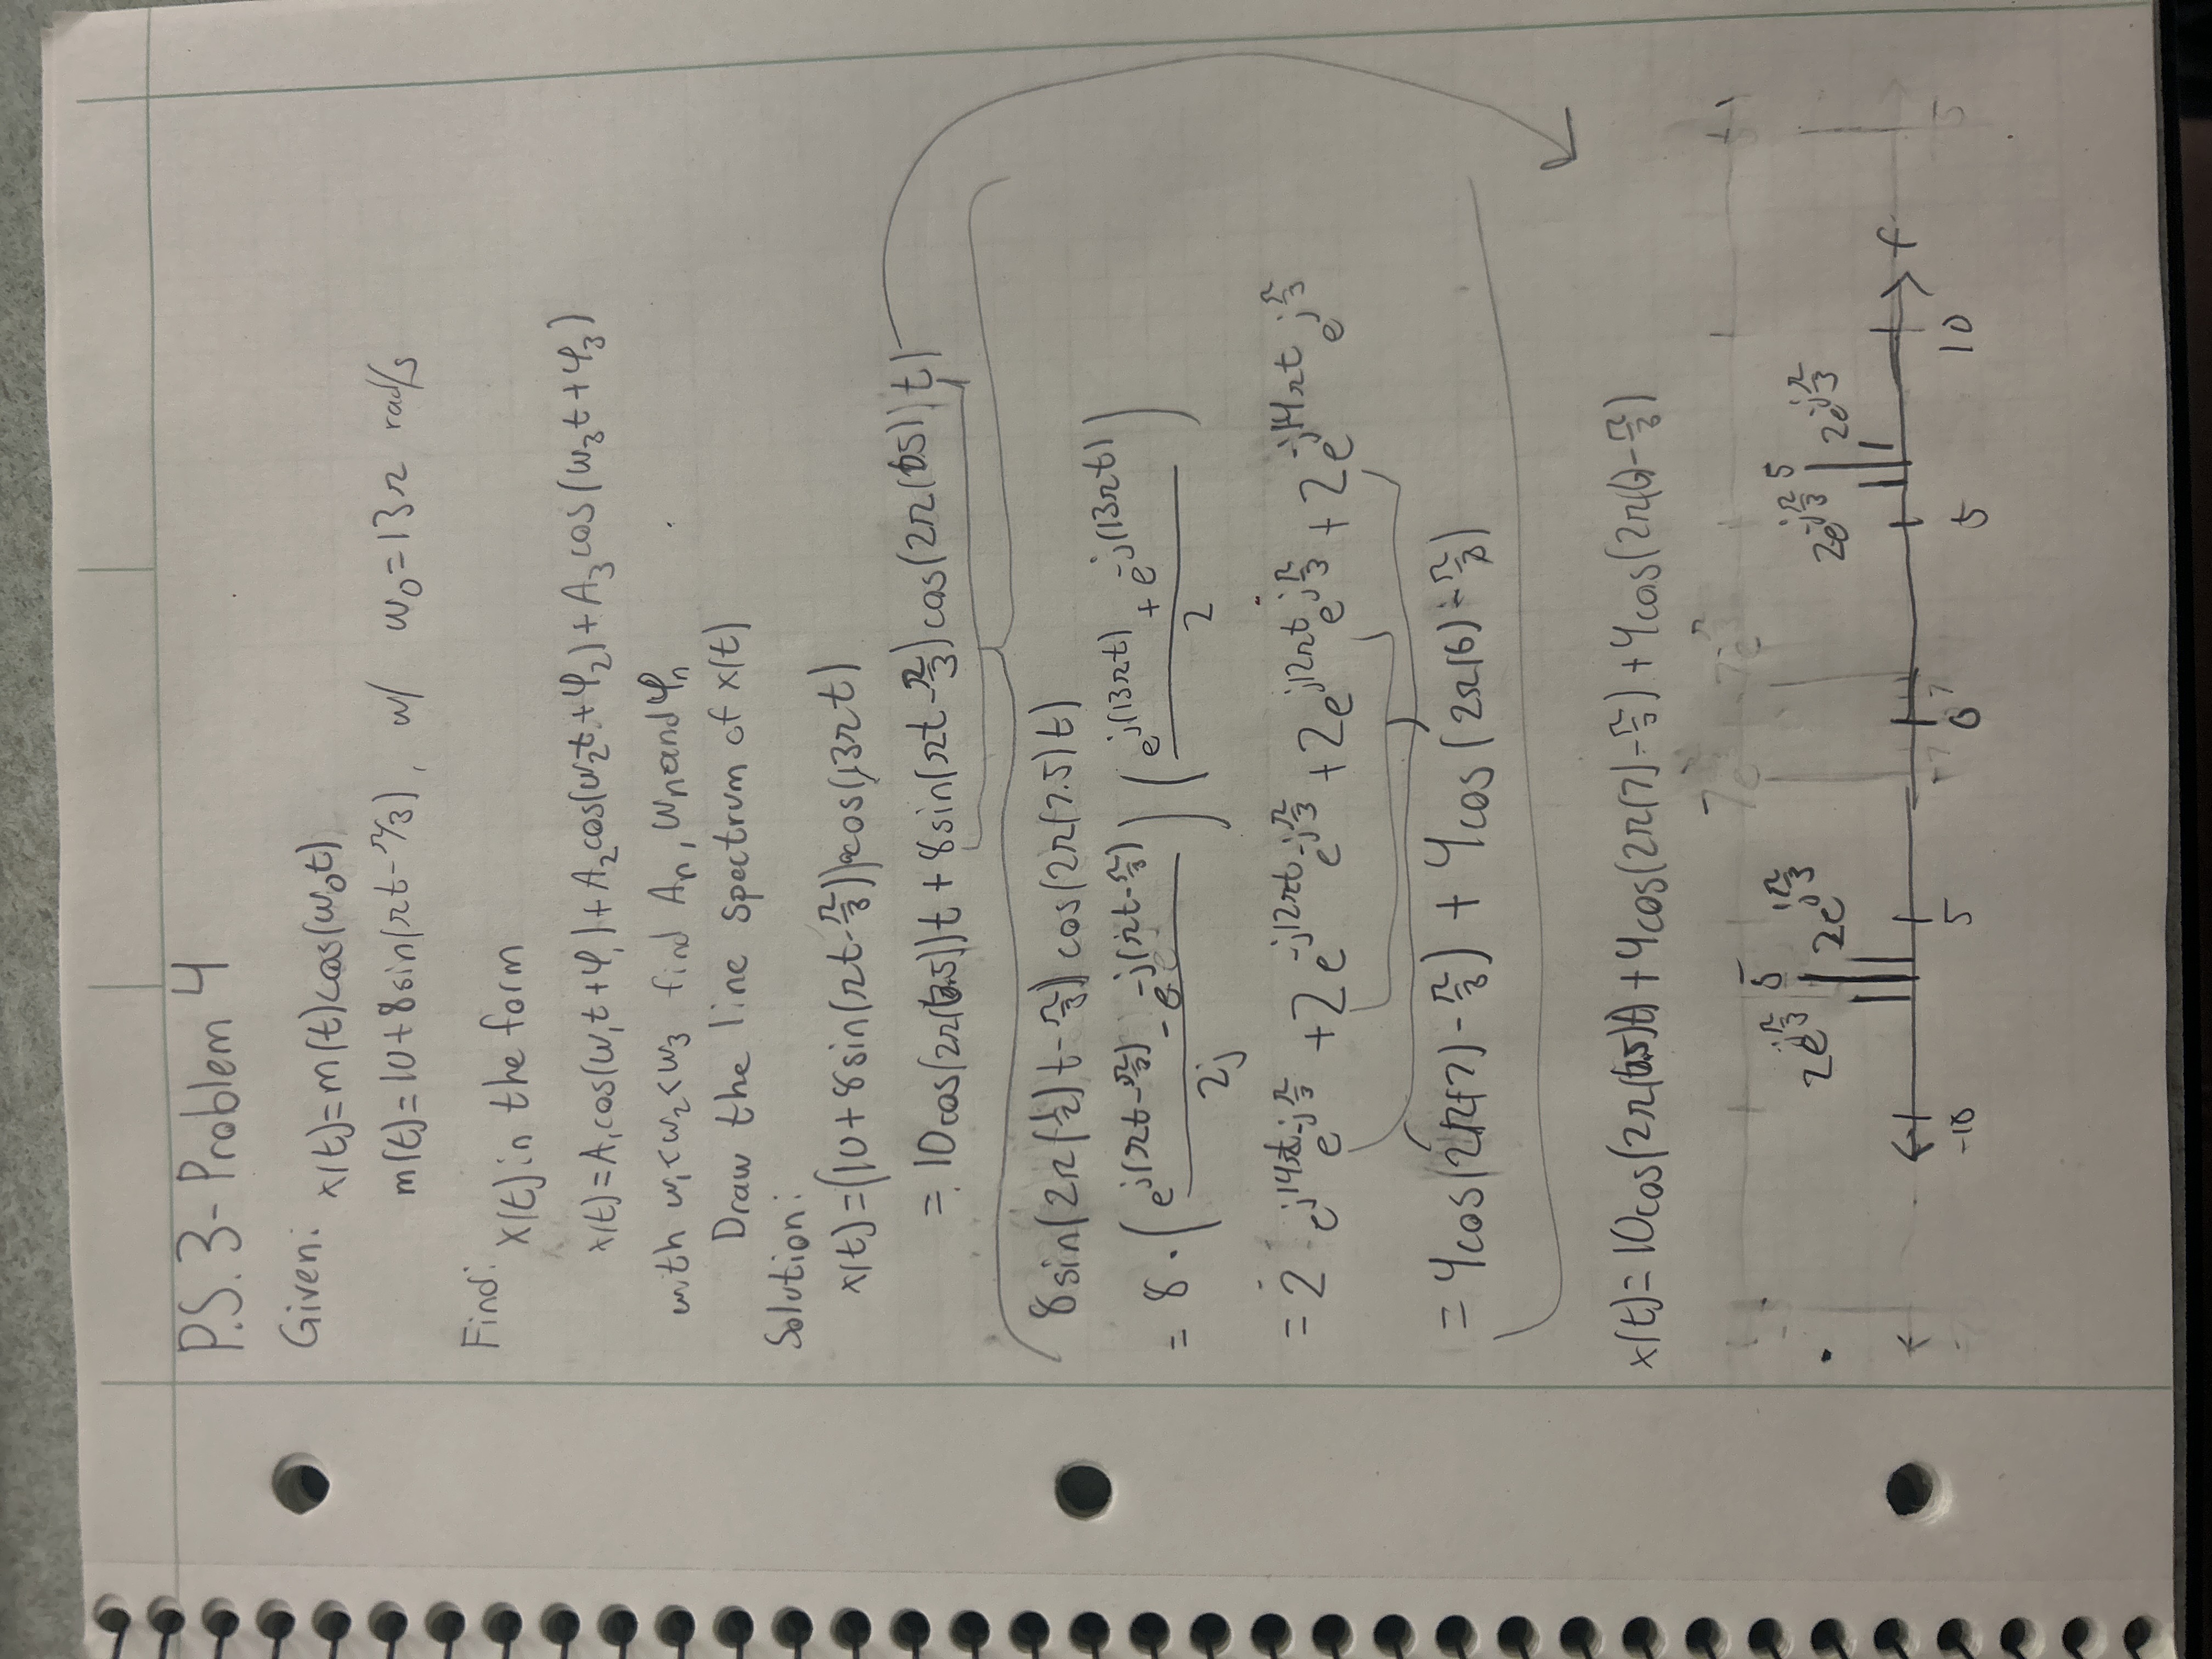 P.S. 3 - Problem 4
Given: x(t) = m(t)cos(ω₀t)
m(t) = 10 + 8sin(πt - π/3), w/ ω₀ = 13π rad/s
Find: x(t) in the form
x(t) = A₁cos(ω₁t + φ₁) + A₂cos(ω₂t + φ₂) + A₃cos(ω₃t + φ₃)
with ω₁ < ω₂ < ω₃ find Aₙ, ωₙ and φₙ
Draw the line spectrum of x(t)
Solution:
x(t) = (10 + 8sin(πt - π/3)) cos(13πt)
= 10cos(2π(6.5))t + 8sin(πt - π/3)cos(2π(6.5))t)
8sin(2π(1/2)t - π/3) cos(2π(7.5)t)
= 8 · ((e^j(πt - π/3) - e^-j(πt - π/3))/2j) ((e^j(13πt) + e^-j(13πt))/2)
= 2 e^j14πt e^-jπ/3 + 2e^-j12πt e^-jπ/3 + 2e^j12πt e^jπ/3 + 2e^-j14πt e^jπ/3
= 4cos(2π(7) - π/3) + 4cos(2π(6) - π/3)
x(t) = 10cos(2π(6.5)t) + 4cos(2π(7) - π/3) + 4cos(2π(6) - π/3)
2e^jπ/3 5 2e^jπ/3 2e^-jπ/3 5 2e^-jπ/3
f
-10 5 0 5 10